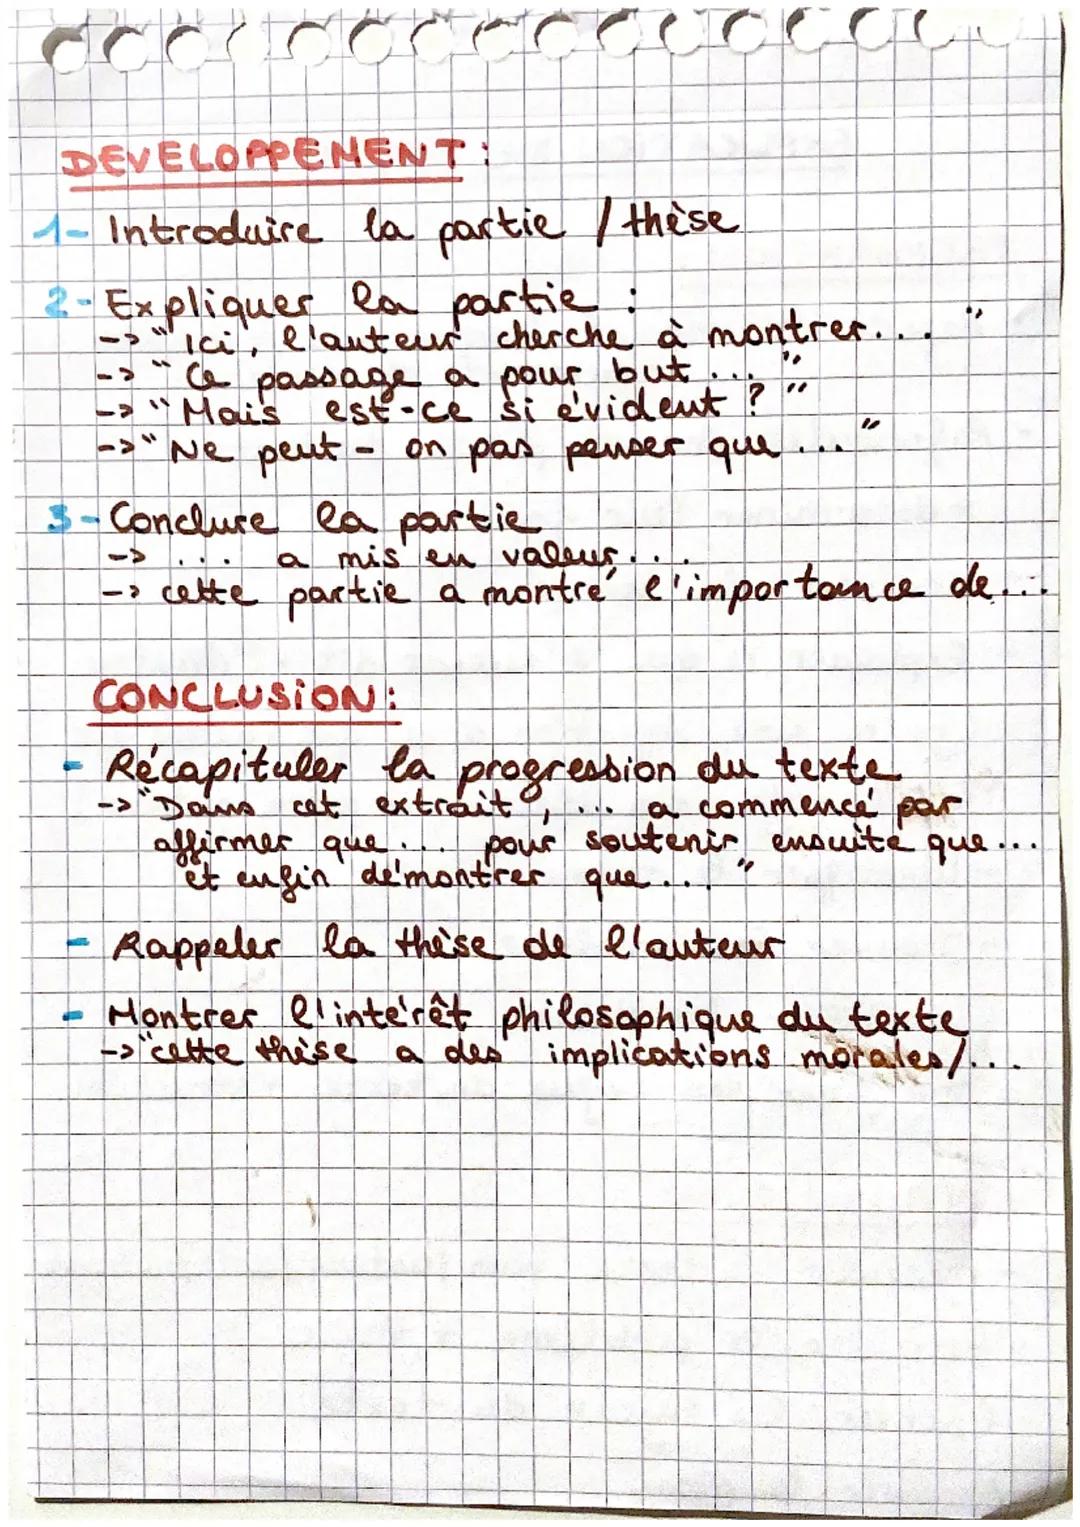 DEVELOPPEMENT :
1- Introduire la partie / thèse
2- Expliquer la partie :
-> "Ici, l'auteur cherche à montrer... "
-> " Ce passage a pour but ... "
-> " Mais est-ce si évident ? "
-> " Ne peut-on pas penser que ... "
3- Conclure la partie
-> ... a mis en valeur ...
-> cette partie a montré l'importance de ...
CONCLUSION :
- Récapituler la progression du texte
-> "Dans cet extrait, ... a commencé par
affirmer que ... pour soutenir ensuite que ...
et enfin démontrer que ... "
- Rappeler la thèse de l'auteur
- Montrer l'intérêt philosophique du texte
-> "cette thèse a des implications morales/...